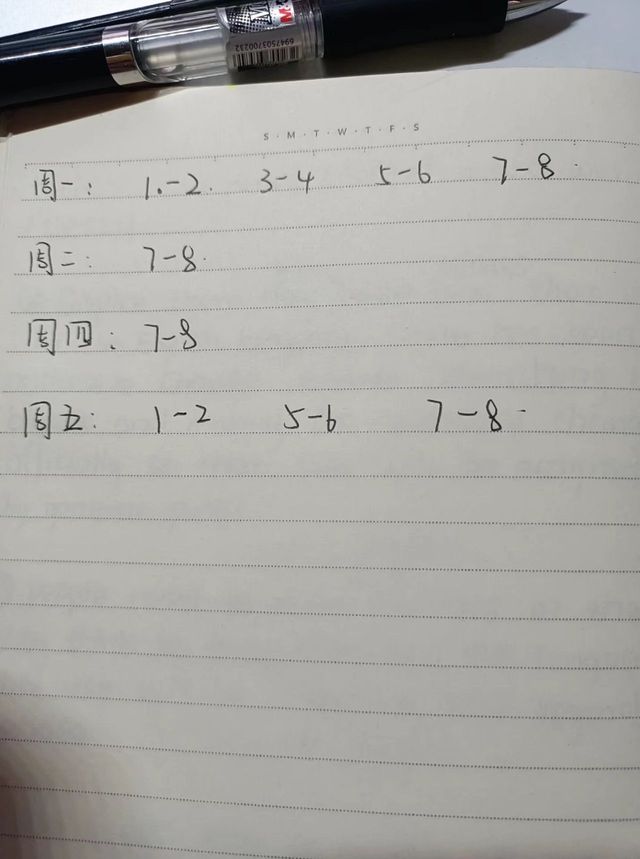 6947503700232
S · M · T · W · T · F · S
周一: 1.-2. 3-4 5-6 7-8.
周二: 7-8.
周四: 7-8
周五: 1-2 5-6 7-8.